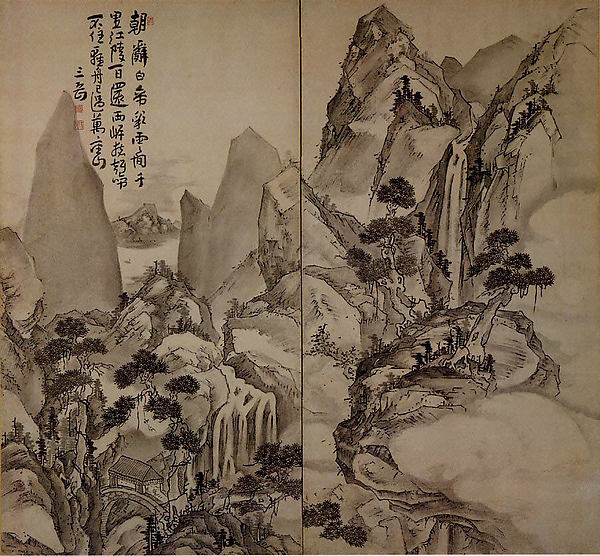 朝辭白帝彩雲間千
里江陵一日還兩岸猿聲啼
不住輕舟已過萬重山
三岳